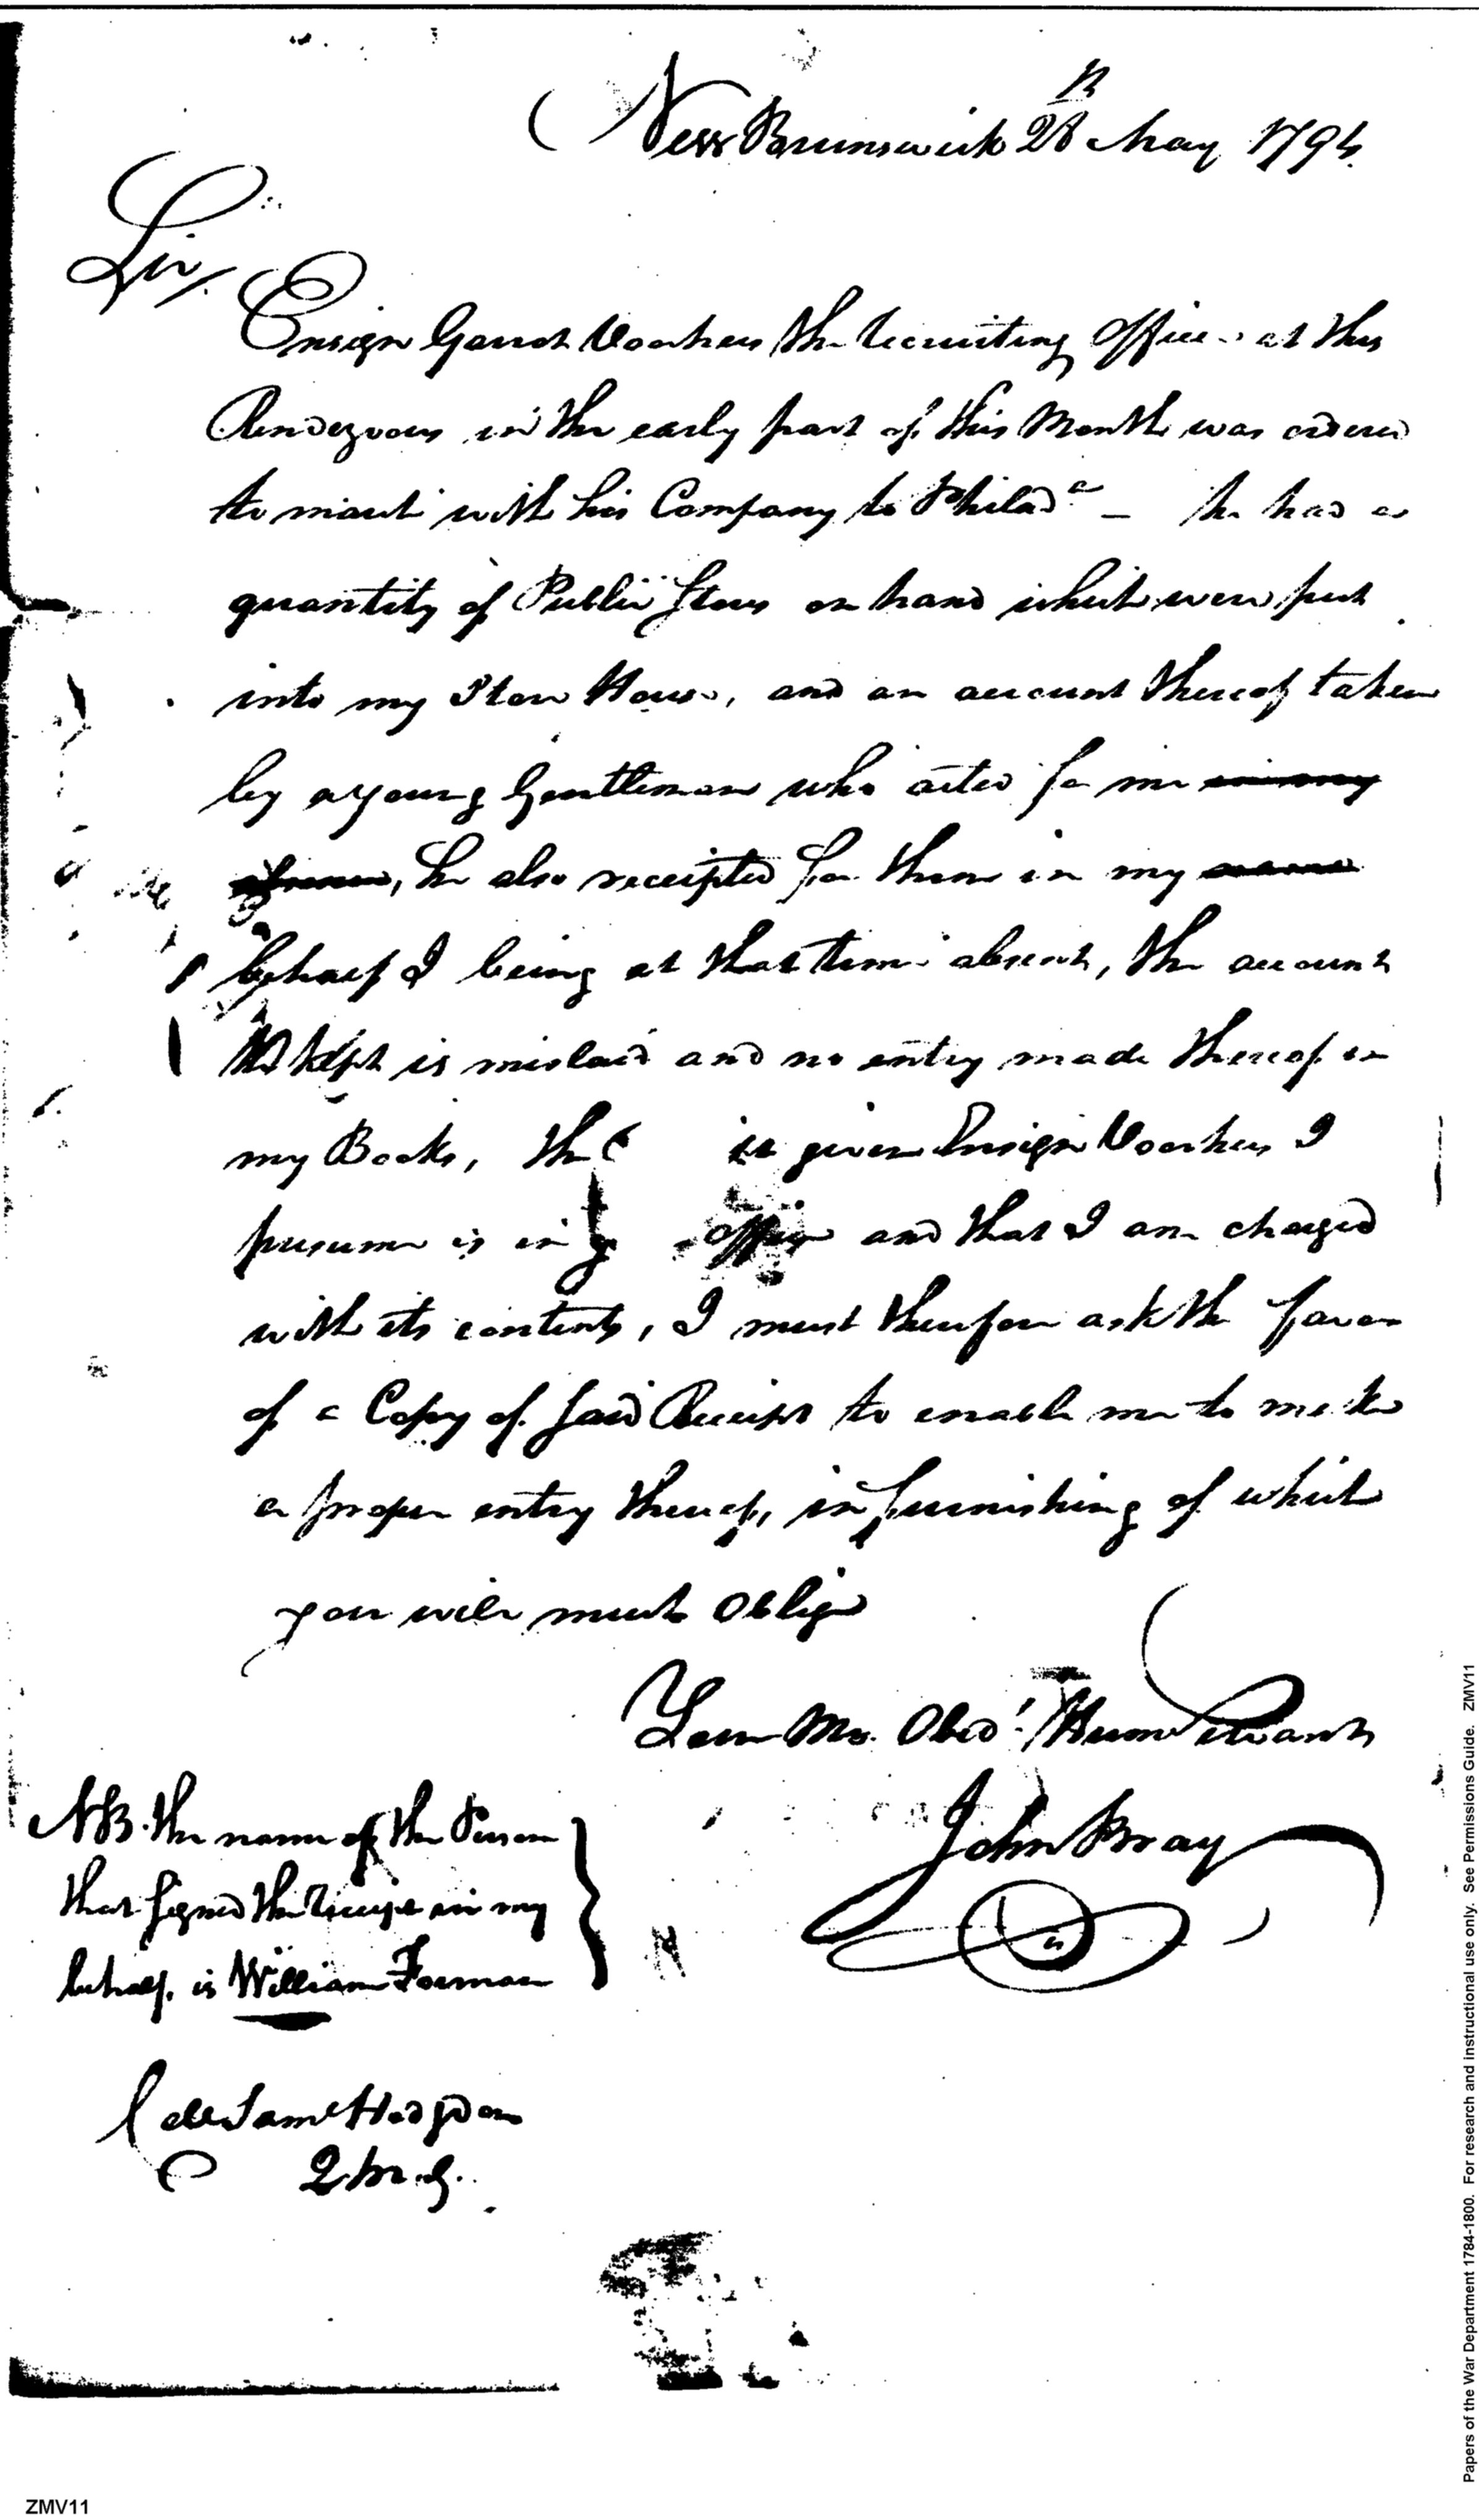 New Brunswick 28th May 1794.
Sir/
Ensign Garret Voorhees the recruiting officer at this
Rendezvous in the early part of this Month was ordered
to march with his Company to Philada — he had a
quantity of Public Stores on hand which were put
into my Store House, and an account thereof taken
by a young Gentleman who acted for me in my
absence, he also receipted for them in my name
behalf I being at that time absent, the account
kept is mislaid and no entry made thereof in
my Books, the given Ensign Voorhees I
presume is in office and that I am charged
with its contents, I must therefore ask the favor
of a Copy of said Receipt to enable me to make
a proper entry thereof, in furnishing of which
you will much Oblige
Your Mo. Obed.t Hume Servant
John Bray
NB. the name of the Person
that signed the receipt in my
behalf. is William Forman
Saml Hodgdon
Q.M.G.
Papers of the War Department 1784-1800. For research and instructional use only. See Permissions Guide. ZMV11
ZMV11